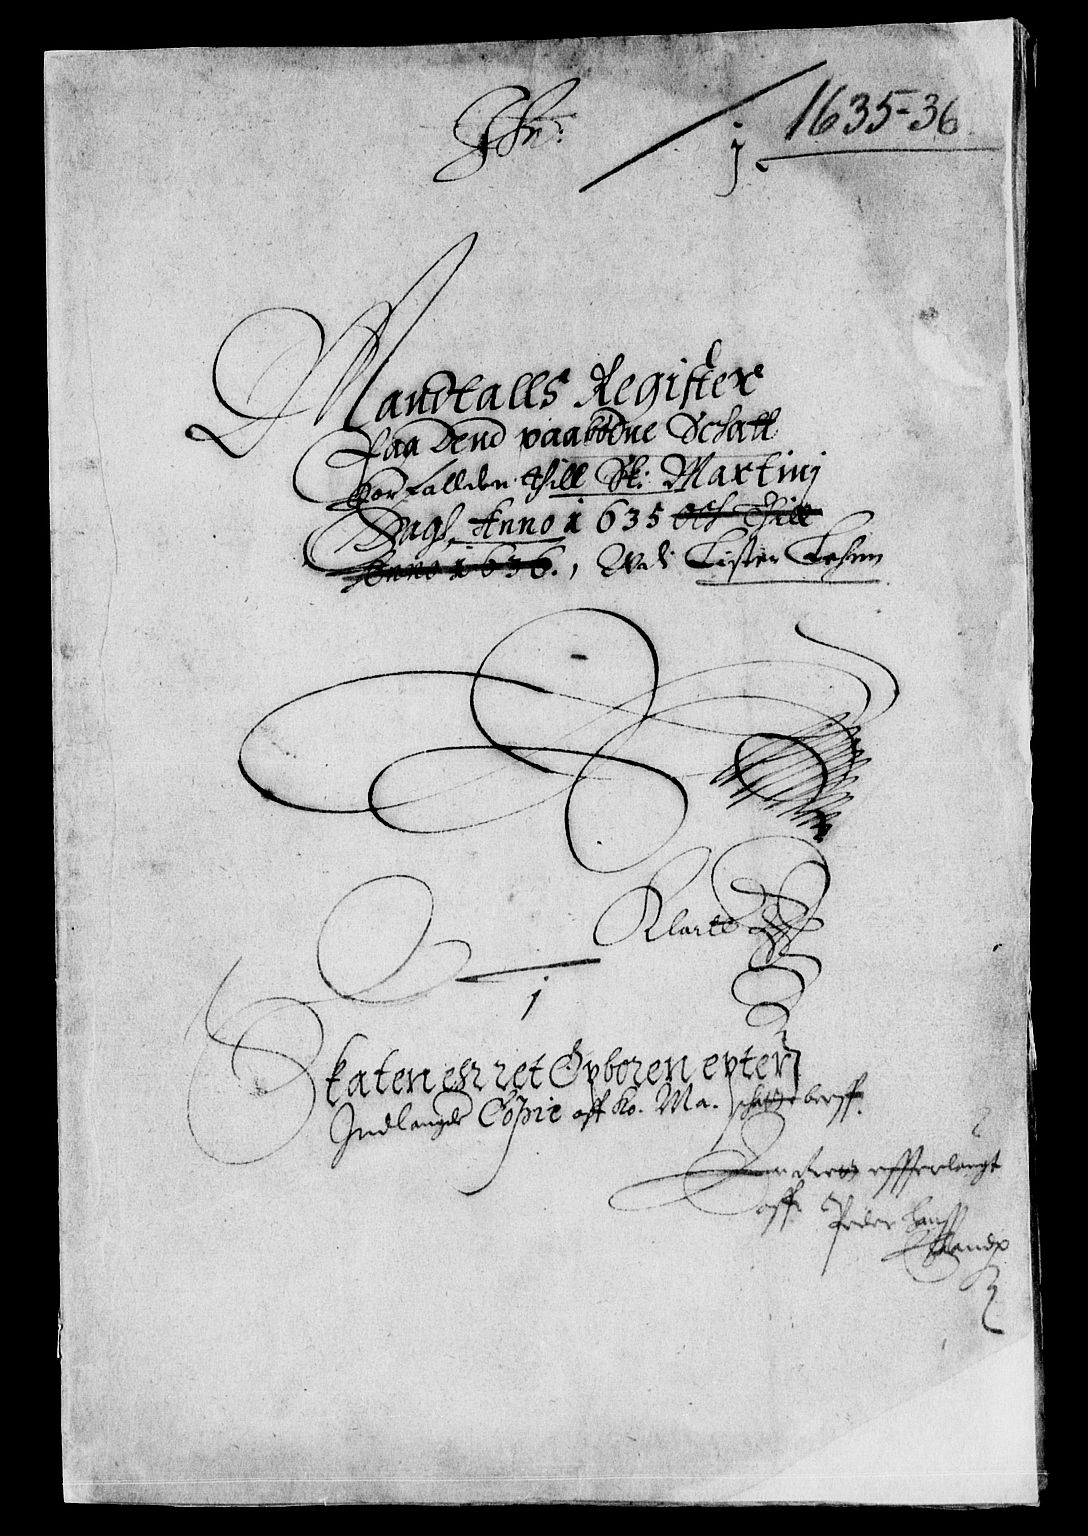 1635-36
j
Mandtalls Register
Paa Dend paabödne Schatt
Forfallden thill St: Martinj
Dagh, Anno 1635 Och Thill
Anno 1636., Wdi Lister Lehnn
Klarer
j
Skaten er ret Opboren epter
Indlangde Copie aff Ko. Ma. schatte breff.
effterlangt
aff Peder Hanss